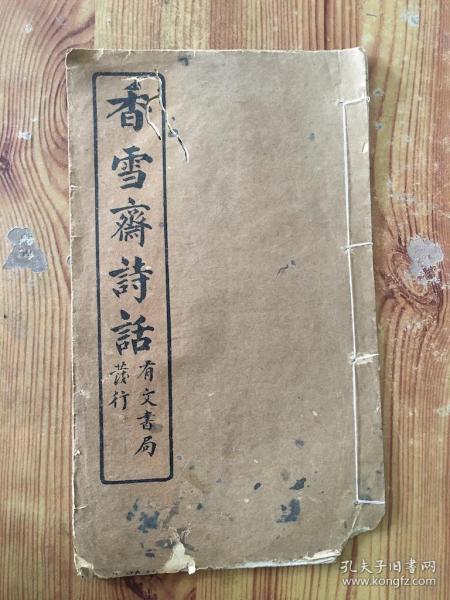 香雪齋詩話
有文書局
發行
孔夫子旧书网
www.kongfz.com